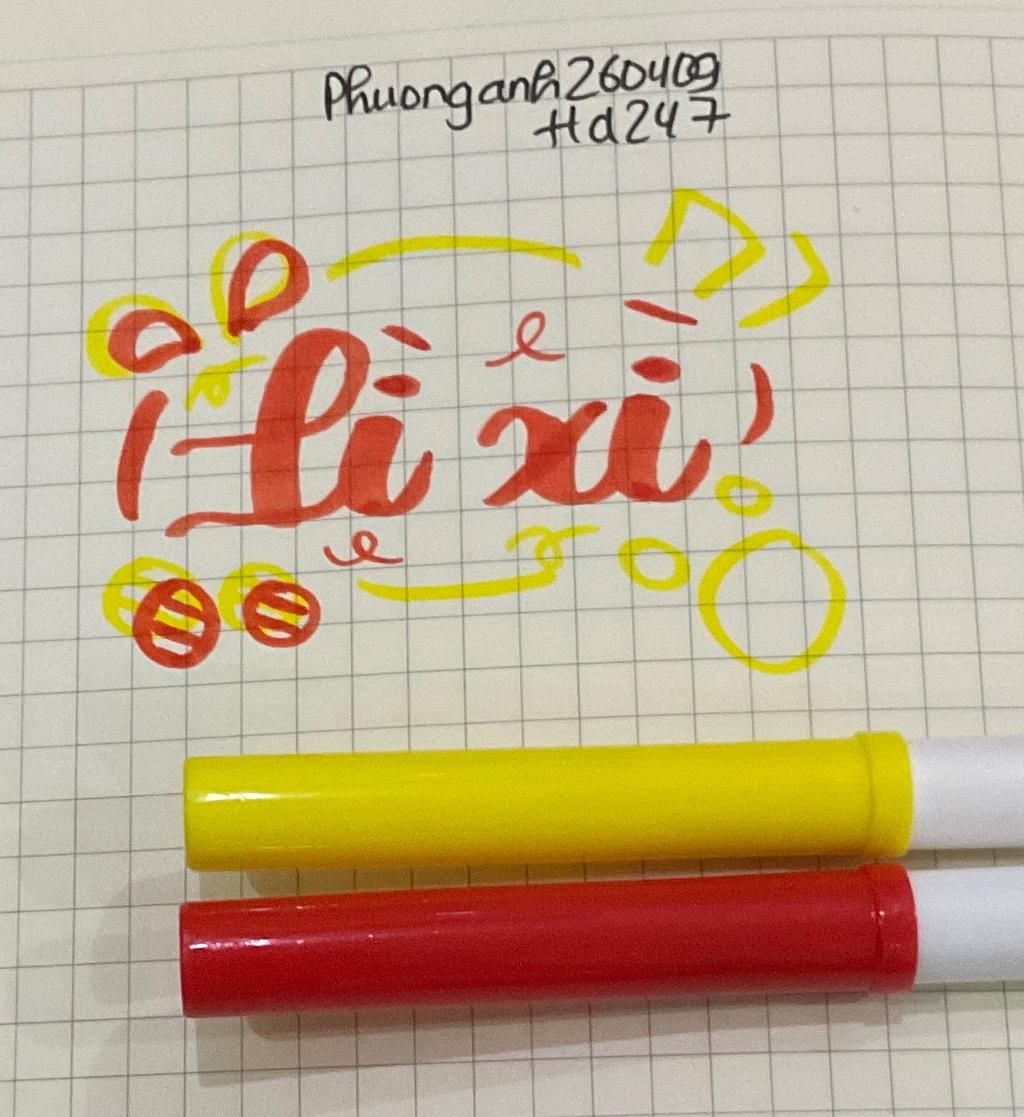 Phuonganh260409
Hd247
Lì xì